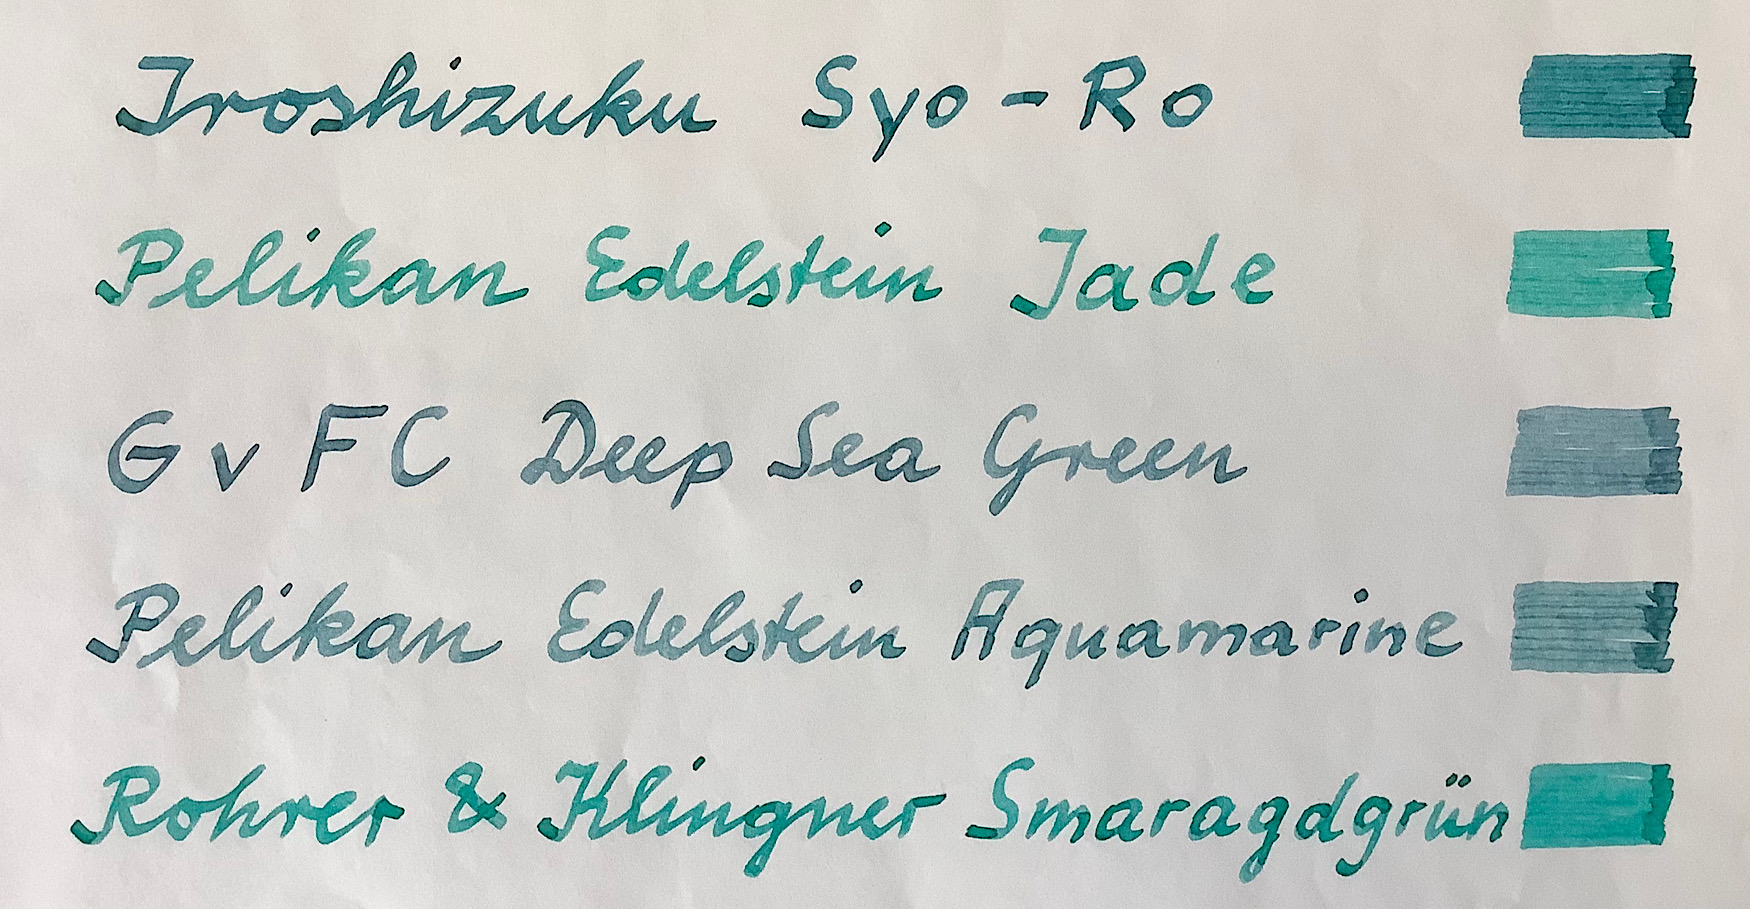 Iroshizuku Syo-Ro
Pelikan Edelstein Jade
GvFC Deep Sea Green
Pelikan Edelstein Aquamarine
Rohrer & Klingner Smaragdgrün